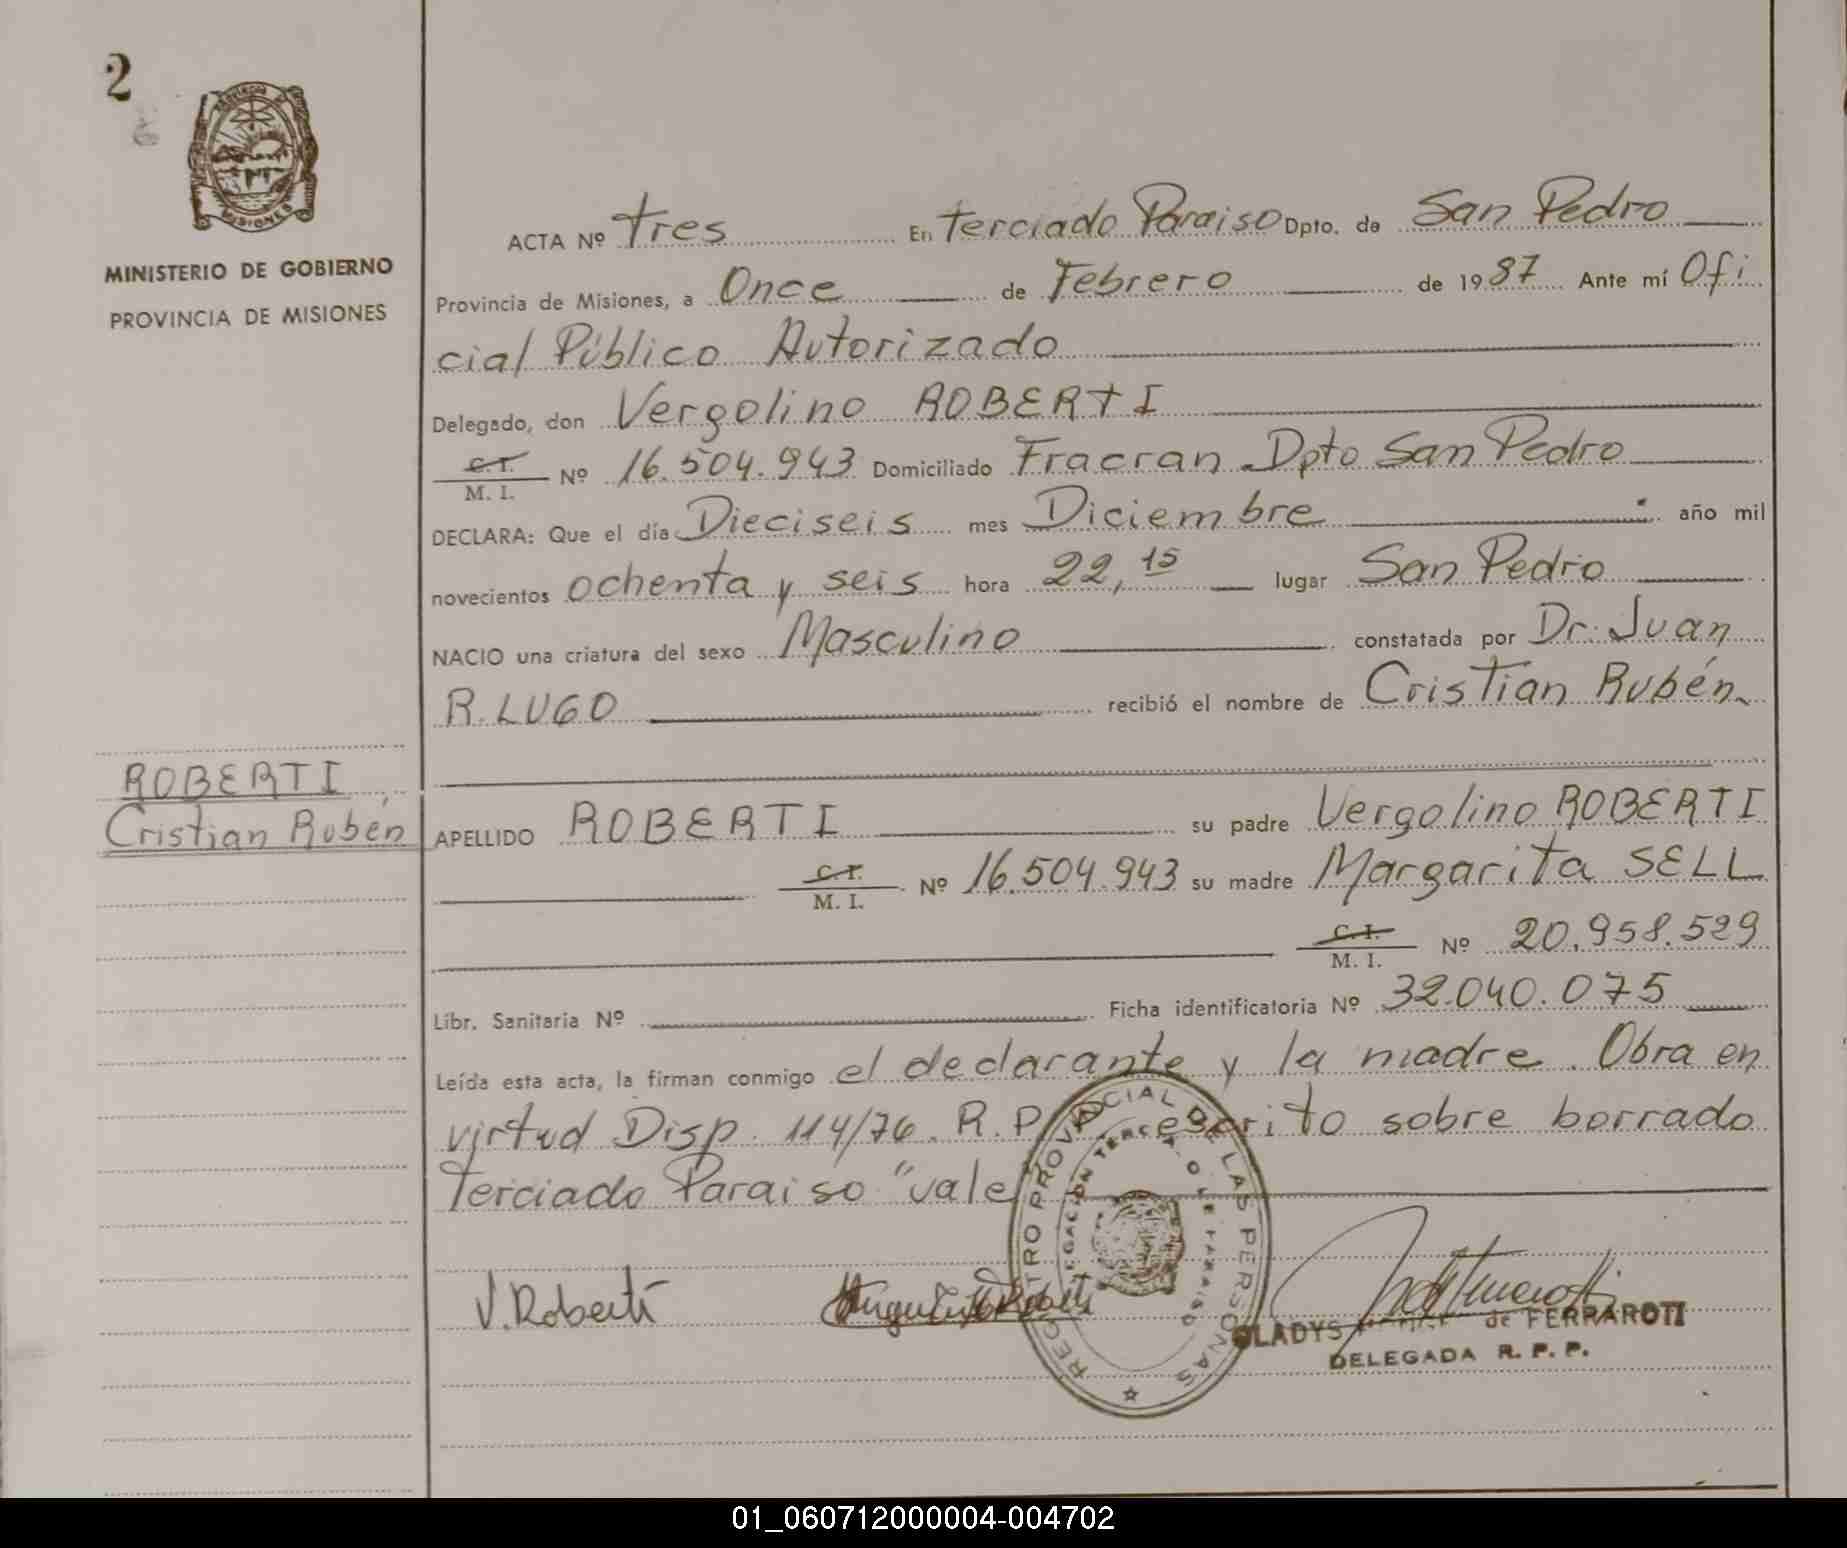 2
PROVINCIA DE
MISIONES
MINISTERIO DE GOBIERNO
PROVINCIA DE MISIONES
ROBERTI
Cristian Rubén
ACTA Nº tres En Terciado Paraiso Dpto. de San Pedro
Provincia de Misiones, a Once de Febrero de 1987 Ante mí Ofi
cial Público Autorizado
Delegado, don Vergolino ROBERTI
C.I. M. I. Nº 16.504.943 Domiciliado Fracran Dpto San Pedro
DECLARA: Que el día Dieciseis mes Diciembre año mil
novecientos ochenta y seis hora 22,15 lugar San Pedro
NACIO una criatura del sexo Masculino constatada por Dr. Juan
R. LUGO recibió el nombre de Cristian Rubén
APELLIDO ROBERTI su padre Vergolino ROBERTI
C.I. M. I. Nº 16.504.943 su madre Margarita SELL
C.I. M. I. Nº 20.958.529
Libr. Sanitaria Nº Ficha identificatoria Nº 32.040.075
Leída esta acta, la firman conmigo el declarante y la madre. Obra en
virtud Disp. 114/76. R.P. escrito sobre borrado
Terciado Paraiso "vale
REGISTRO PROVINCIAL DE LAS PERSONAS
V. Roberti
GLADYS de FERRAROTI
DELEGADA R. P. P.
01_060712000004-004702